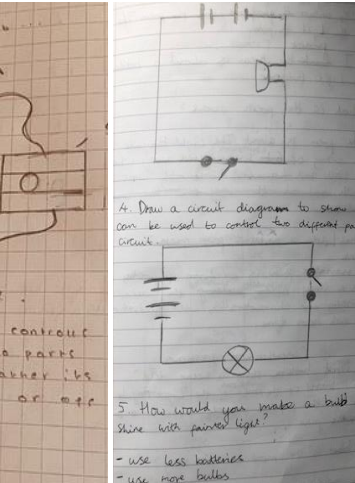 controus
parts
its
or off
4. Draw a circuit diagram to show
can be used to control two different pa
circuit.
5 How would you make a bulb
shine with fainter light?
- use less batteries
- use more bulbs